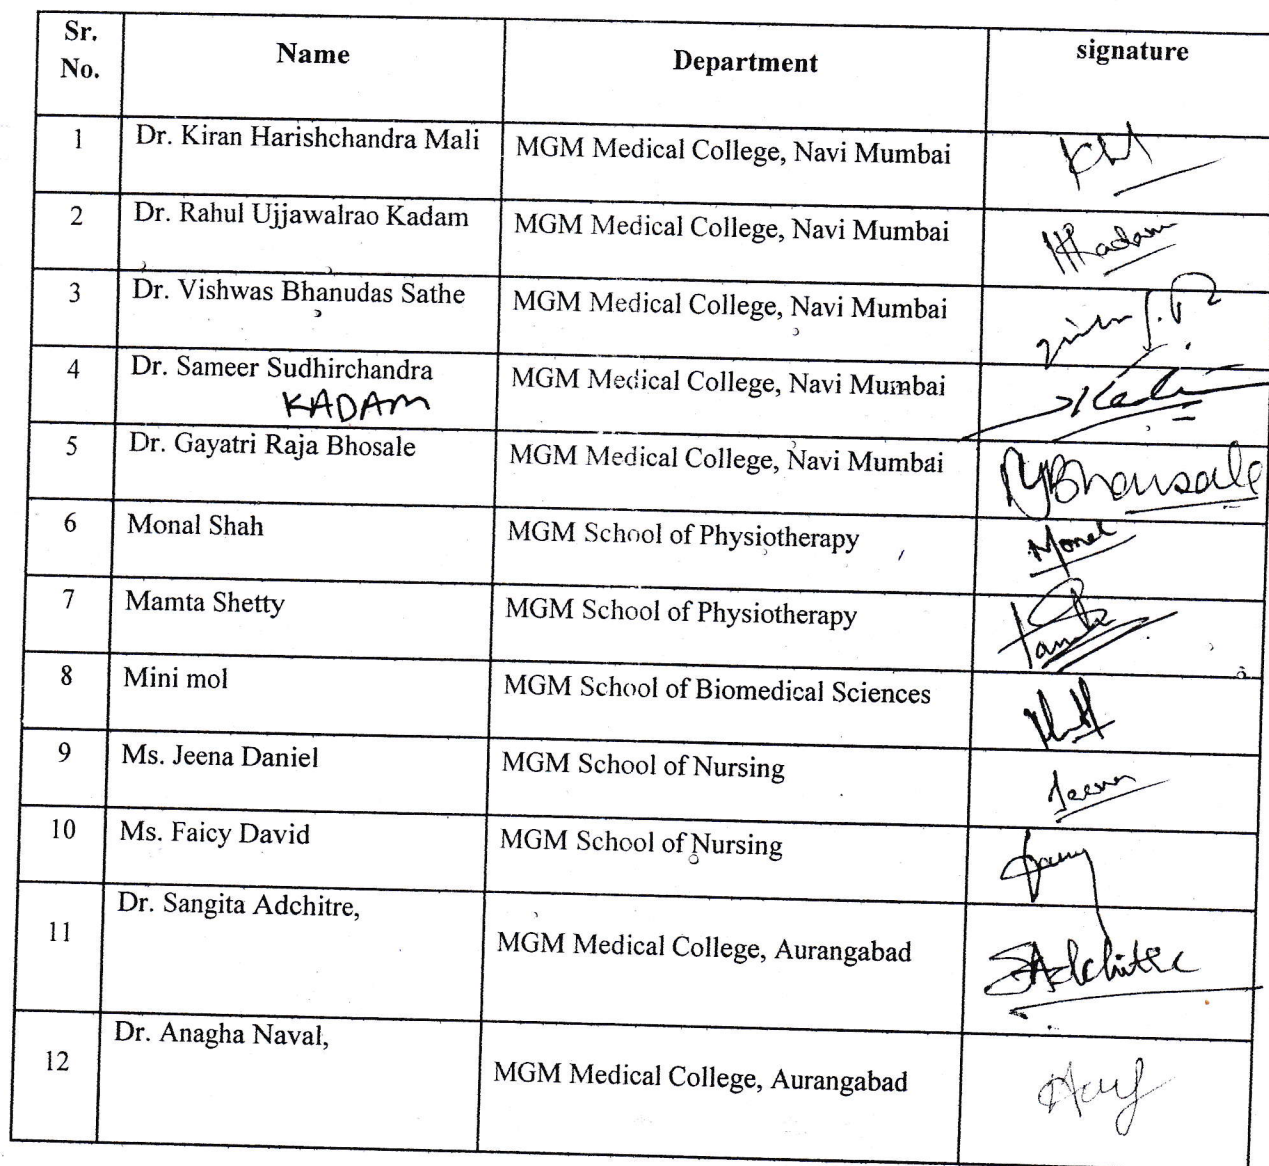 Sr. No. Name Department signature
1 Dr. Kiran Harishchandra Mali MGM Medical College, Navi Mumbai
2 Dr. Rahul Ujjawalrao Kadam MGM Medical College, Navi Mumbai Kadam
3 Dr. Vishwas Bhanudas Sathe MGM Medical College, Navi Mumbai
4 Dr. Sameer Sudhirchandra MGM Medical College, Navi Mumbai
KADAM
5 Dr. Gayatri Raja Bhosale MGM Medical College, Navi Mumbai
6 Monal Shah MGM School of Physiotherapy Monal
7 Mamta Shetty MGM School of Physiotherapy
8 Mini mol MGM School of Biomedical Sciences
9 Ms. Jeena Daniel MGM School of Nursing Jeena
10 Ms. Faicy David MGM School of Nursing
11 Dr. Sangita Adchitre, MGM Medical College, Aurangabad SAdchitre
12 Dr. Anagha Naval, MGM Medical College, Aurangabad